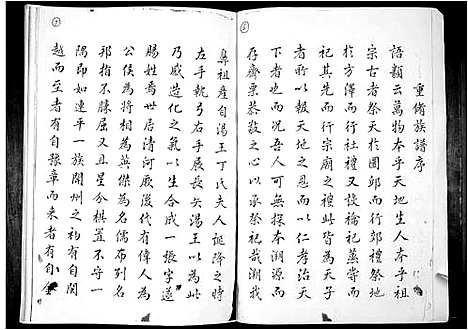 重脩族譜序
語類云萬物本乎天地生人本乎祖
宗古者祭天於圜邱而行郊禮祭地
於方澤而行社禮又以禴祀蒸嘗而
祀其先祖而行宗廟之禮此皆為天子
者所以報天地之恩而以仁孝治天
下者也而況吾人可無探本溯源而
存齋栗恭敬之心以承祭祀哉溯我
鼻祖產自湯王丁氏夫人誕降之時
左手執弓右手展長矢湯王以為神奇
乃感造化之氣以生合成一張字遂
賜姓為世居清河厥後代有偉人為
公侯為將相為英傑為名儒布列名
邦指不勝屈又且星分棋置不守一
隅即如連平一族開州之初有自閩
越而至者有自豫章而來者有自金